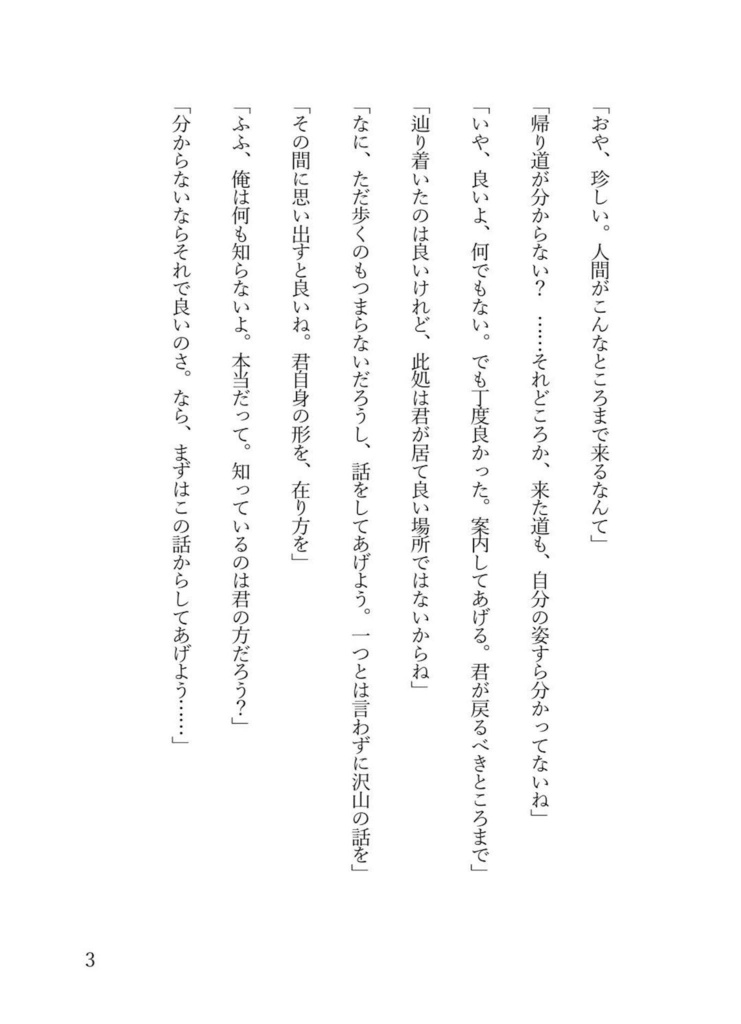 「おや、珍しい。人間がこんなところまで来るなんて」
「帰り道が分からない？　……それどころか、来た道も、自分の姿すら分かってないね」
「いや、良いよ、何でもない。でも丁度良かった。案内してあげる。君が戻るべきところまで」
「辿り着いたのは良いけれど、此処は君が居て良い場所ではないからね」
「なに、ただ歩くのもつまらないだろうし、話をしてあげよう。一つとは言わずに沢山の話を」
「その間に思い出すと良いね。君自身の形を、在り方を」
「ふふ、俺は何も知らないよ。本当だって。知っているのは君の方だろう？」
「分からないならそれで良いのさ。なら、まずはこの話からしてあげよう……」
3